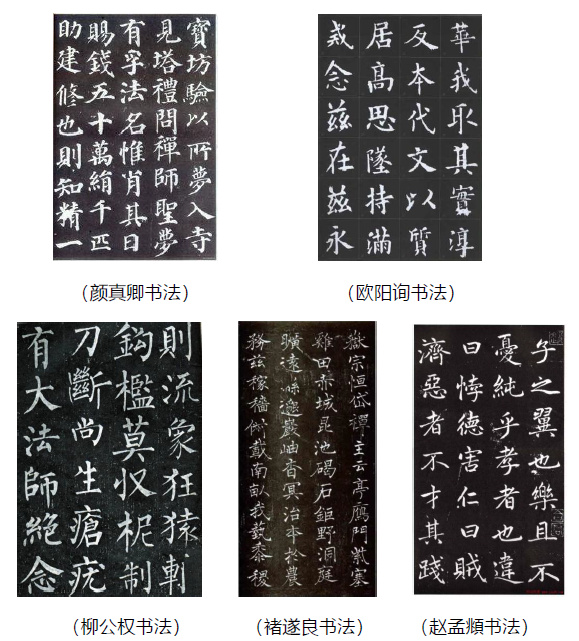 寶坊驗以所夢入寺
見塔禮問禪師聖夢
有孚法名惟肖其日
賜錢五十萬絹千匹
助建修也則知精一
（颜真卿书法）
華我取其實淳
反本代文以質
居高思墜持滿
戒念茲在茲永
（欧阳询书法）
則流象狂猿輒
鈎檻莫收柅制
刀斷尚生瘡疣
有大法師絕念
（柳公权书法）
嶽宗恒岱禪主云亭鴈門紫塞
雞田赤城昆池碣石鉅野洞庭
曠遠緜邈巖岫杳冥治本於農
務茲稼穡俶載南畝我藝黍稷
（褚遂良书法）
子之翼也樂且不
憂純乎孝者也違
曰悖德害仁曰賊
濟惡者不才其踐
（赵孟頫书法）